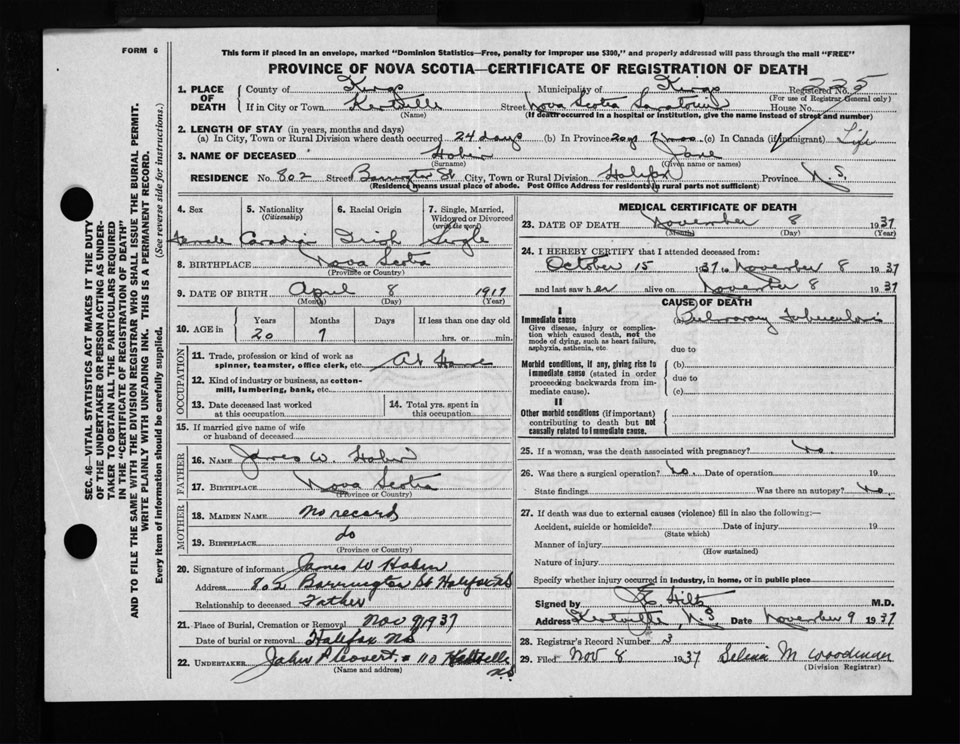 FORM 6
This form if placed in an envelope, marked "Dominion Statistics—Free, penalty for improper use $300," and properly addressed will pass through the mail "FREE"
PROVINCE OF NOVA SCOTIA—CERTIFICATE OF REGISTRATION OF DEATH
1. PLACE OF DEATH County of Kings Municipality of Kings Registered No. 225
(For use of Registrar General only)
If in City or Town Kentville Street Nova Scotia Sanatorium House No.
(Name) (If death occurred in a hospital or institution, give the name instead of street and number)
2. LENGTH OF STAY (in years, months and days)
(a) In City, Town or Rural Division where death occurred 24 days (b) In Province 20 y 7 mos. (c) In Canada (if immigrant) Life
3. NAME OF DECEASED Hobin Jane
(Surname) (Given name or names)
RESIDENCE No. 802 Street Barrington St City, Town or Rural Division Halifax Province N.S.
(Residence means usual place of abode. Post Office Address for residents in rural parts not sufficient)
4. Sex 5. Nationality (Citizenship) 6. Racial Origin 7. Single, Married, Widowed or Divorced (write the word)
Female Canadian Irish Single
8. BIRTHPLACE Nova Scotia
(Province or Country)
9. DATE OF BIRTH April 8 1917
(Month) (Day) (Year)
10. AGE in Years Months Days If less than one day old
20 7 hrs. or min.
OCCUPATION
11. Trade, profession or kind of work as spinner, teamster, office clerk, etc. At Home
12. Kind of industry or business, as cotton-mill, lumbering, bank, etc.
13. Date deceased last worked at this occupation 14. Total yrs. spent in this occupation
15. If married give name of wife or husband of deceased
FATHER
16. NAME James W. Hobin
17. BIRTHPLACE Nova Scotia
(Province or Country)
MOTHER
18. MAIDEN NAME no record
19. BIRTHPLACE do
(Province or Country)
20. Signature of informant James W Hobin
Address 802 Barrington St Halifax NS
Relationship to deceased Father
21. Place of Burial, Cremation or Removal Nov 9/1937
Date of burial or removal Halifax NS
22. UNDERTAKER John P 110 Kentville NS
(Name and address)
MEDICAL CERTIFICATE OF DEATH
23. DATE OF DEATH November 8 1937
(Month) (Day) (Year)
24. I HEREBY CERTIFY that I attended deceased from:
October 15 1937 to November 8 1937
and last saw her alive on November 8 1937
CAUSE OF DEATH
I
Immediate cause (a) Pulmonary Tuberculosis
Give disease, injury or complication which caused death, not the mode of dying, such as heart failure, asphyxia, asthenia, etc.
due to
Morbid conditions, if any, giving rise to immediate cause (stated in order proceeding backwards from immediate cause).
(b)
due to
(c)
II
Other morbid conditions (if important) contributing to death but not causally related to immediate cause.
25. If a woman, was the death associated with pregnancy? No.
26. Was there a surgical operation? No. Date of operation 19
State findings Was there an autopsy? No.
27. If death was due to external causes (violence) fill in also the following:—
Accident, suicide or homicide? Date of injury 19
(State which)
Manner of injury
(How sustained)
Nature of injury
Specify whether injury occurred in industry, in home, or in public place
Signed by Hiltz M.D.
Address Kentville, N.S Date November 9 1937
28. Registrar's Record Number 3
29. Filed Nov 8 1937 Selina M Woodman
(Division Registrar)
SEC. 46—VITAL STATISTICS ACT MAKES IT THE DUTY
OF THE UNDERTAKER OR PERSON ACTING AS UNDER-
TAKER TO OBTAIN ALL THE PARTICULARS REQUIRED
IN THE "CERTIFICATE OF REGISTRATION OF DEATH"
AND TO FILE THE SAME WITH THE DIVISION REGISTRAR WHO SHALL ISSUE THE BURIAL PERMIT.
WRITE PLAINLY WITH UNFADING INK. THIS IS A PERMANENT RECORD.
Every item of information should be carefully supplied. (See reverse side for instructions.)